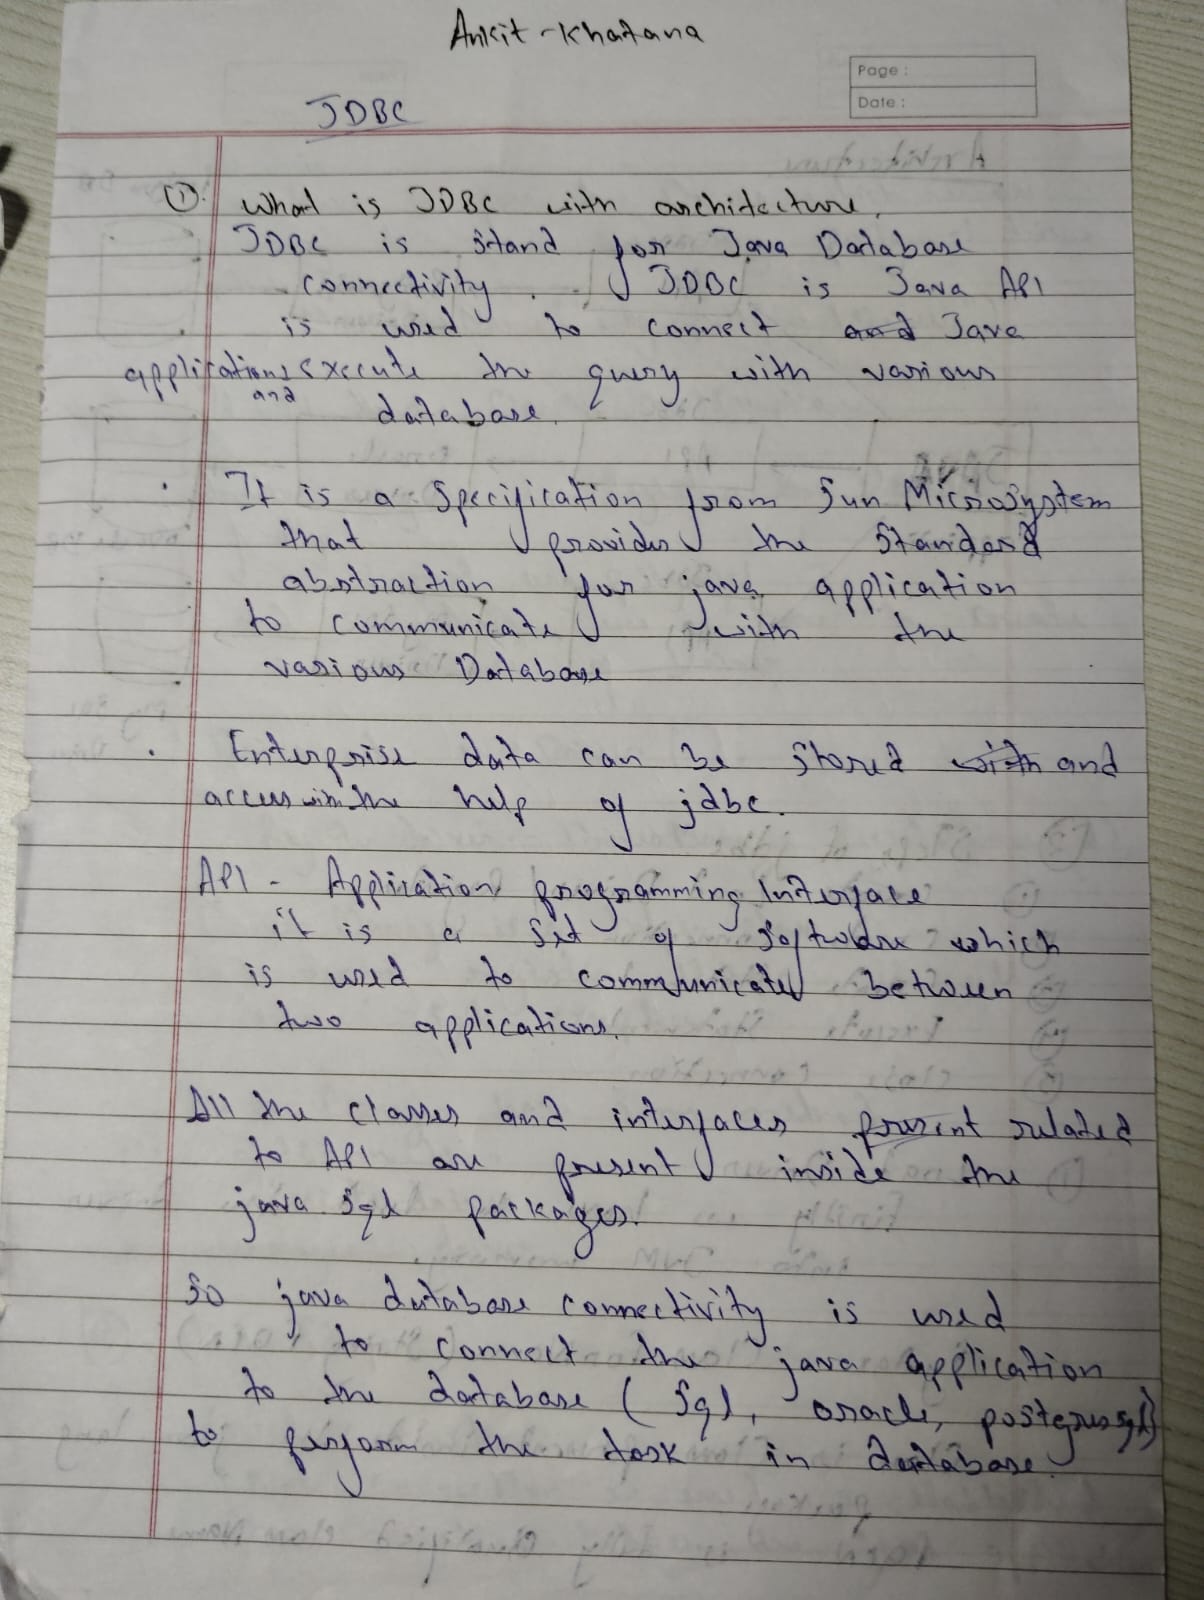 Ankit - Khatana
Page :
Date :
JDBC
① What is JDBC with architecture.
JDBC is stand for Java Database
connectivity. JDBC is Java API
is used to connect and Java
applications execute the query with various
and
database.
. It is a specification from Sun Microsystem
that provides the standard
abstraction for java application
to communicate with the
various Database
. Enterprise data can be stored with and
access with the help of jdbc.
API - Application programming Interface
it is a set of software which
is used to communicate between
two applications.
All the classes and interfaces present related
to API are present inside the
java sql packages.
So java database connectivity is used
to connect the java application
to the database (Sql, oracle, postgresql)
to perform the task in database.